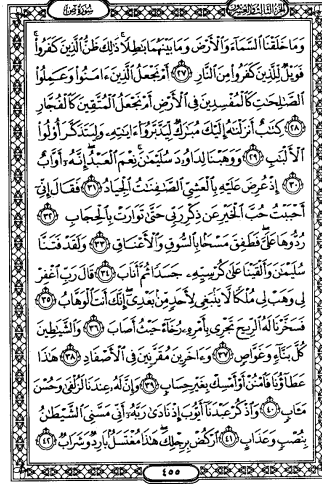 الجزء الثالث والعشرون سورة ص
وَمَا خَلَقْنَا ٱلسَّمَآءَ وَٱلْأَرْضَ وَمَا بَيْنَهُمَا بَٰطِلًا ۚ ذَٰلِكَ ظَنُّ ٱلَّذِينَ كَفَرُوا۟ ۚ
فَوَيْلٌ لِّلَّذِينَ كَفَرُوا۟ مِنَ ٱلنَّارِ ٢٧ أَمْ نَجْعَلُ ٱلَّذِينَ ءَامَنُوا۟ وَعَمِلُوا۟
ٱلصَّٰلِحَٰتِ كَٱلْمُفْسِدِينَ فِى ٱلْأَرْضِ أَمْ نَجْعَلُ ٱلْمُتَّقِينَ كَٱلْفُجَّارِ
٢٨ كِتَٰبٌ أَنزَلْنَٰهُ إِلَيْكَ مُبَٰرَكٌ لِّيَدَّبَّرُوٓا۟ ءَايَٰتِهِۦ وَلِيَتَذَكَّرَ أُو۟لُوا۟
ٱلْأَلْبَٰبِ ٢٩ وَوَهَبْنَا لِدَاوُۥدَ سُلَيْمَٰنَ ۚ نِعْمَ ٱلْعَبْدُ ۖ إِنَّهُۥٓ أَوَّابٌ
٣٠ إِذْ عُرِضَ عَلَيْهِ بِٱلْعَشِىِّ ٱلصَّٰفِنَٰتُ ٱلْجِيَادُ ٣١ فَقَالَ إِنِّىٓ
أَحْبَبْتُ حُبَّ ٱلْخَيْرِ عَن ذِكْرِ رَبِّى حَتَّىٰ تَوَارَتْ بِٱلْحِجَابِ ٣٢
رُدُّوهَا عَلَىَّ ۖ فَطَفِقَ مَسْحًۢا بِٱلسُّوقِ وَٱلْأَعْنَاقِ ٣٣ وَلَقَدْ فَتَنَّا
سُلَيْمَٰنَ وَأَلْقَيْنَا عَلَىٰ كُرْسِيِّهِۦ جَسَدًا ثُمَّ أَنَابَ ٣٤ قَالَ رَبِّ ٱغْفِرْ
لِى وَهَبْ لِى مُلْكًا لَّا يَنۢبَغِى لِأَحَدٍ مِّنۢ بَعْدِىٓ ۖ إِنَّكَ أَنتَ ٱلْوَهَّابُ ٣٥
فَسَخَّرْنَا لَهُ ٱلرِّيحَ تَجْرِى بِأَمْرِهِۦ رُخَآءً حَيْثُ أَصَابَ ٣٦ وَٱلشَّيَٰطِينَ
كُلَّ بَنَّآءٍ وَغَوَّاصٍ ٣٧ وَءَاخَرِينَ مُقَرَّنِينَ فِى ٱلْأَصْفَادِ ٣٨ هَٰذَا
عَطَآؤُنَا فَٱمْنُنْ أَوْ أَمْسِكْ بِغَيْرِ حِسَابٍ ٣٩ وَإِنَّ لَهُۥ عِندَنَا لَزُلْفَىٰ وَحُسْنَ
مَـَٔابٍ ٤٠ وَٱذْكُرْ عَبْدَنَآ أَيُّوبَ إِذْ نَادَىٰ رَبَّهُۥٓ أَنِّى مَسَّنِىَ ٱلشَّيْطَٰنُ
بِنُصْبٍ وَعَذَابٍ ٤١ ٱرْكُضْ بِرِجْلِكَ ۖ هَٰذَا مُغْتَسَلٌۢ بَارِدٌ وَشَرَابٌ ٤٢
٤٥٥